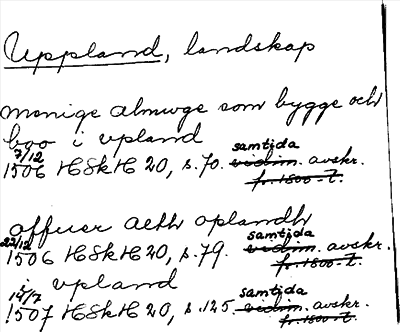 Uppland, landskap
menige almwge som bygge och
boo i vpland
7/12 samtida
1506 HSkH 20, s. 70. vidim. avskr.
fr. 1800-t.
offuer alth oplandh
22/12 samtida
1506 HSkH 20, s. 79. vidim. avskr.
fr. 1800-t.
i vpland
14/7 samtida
1507 HSkH 20, s. 125 vidim. avskr.
fr. 1800-t.